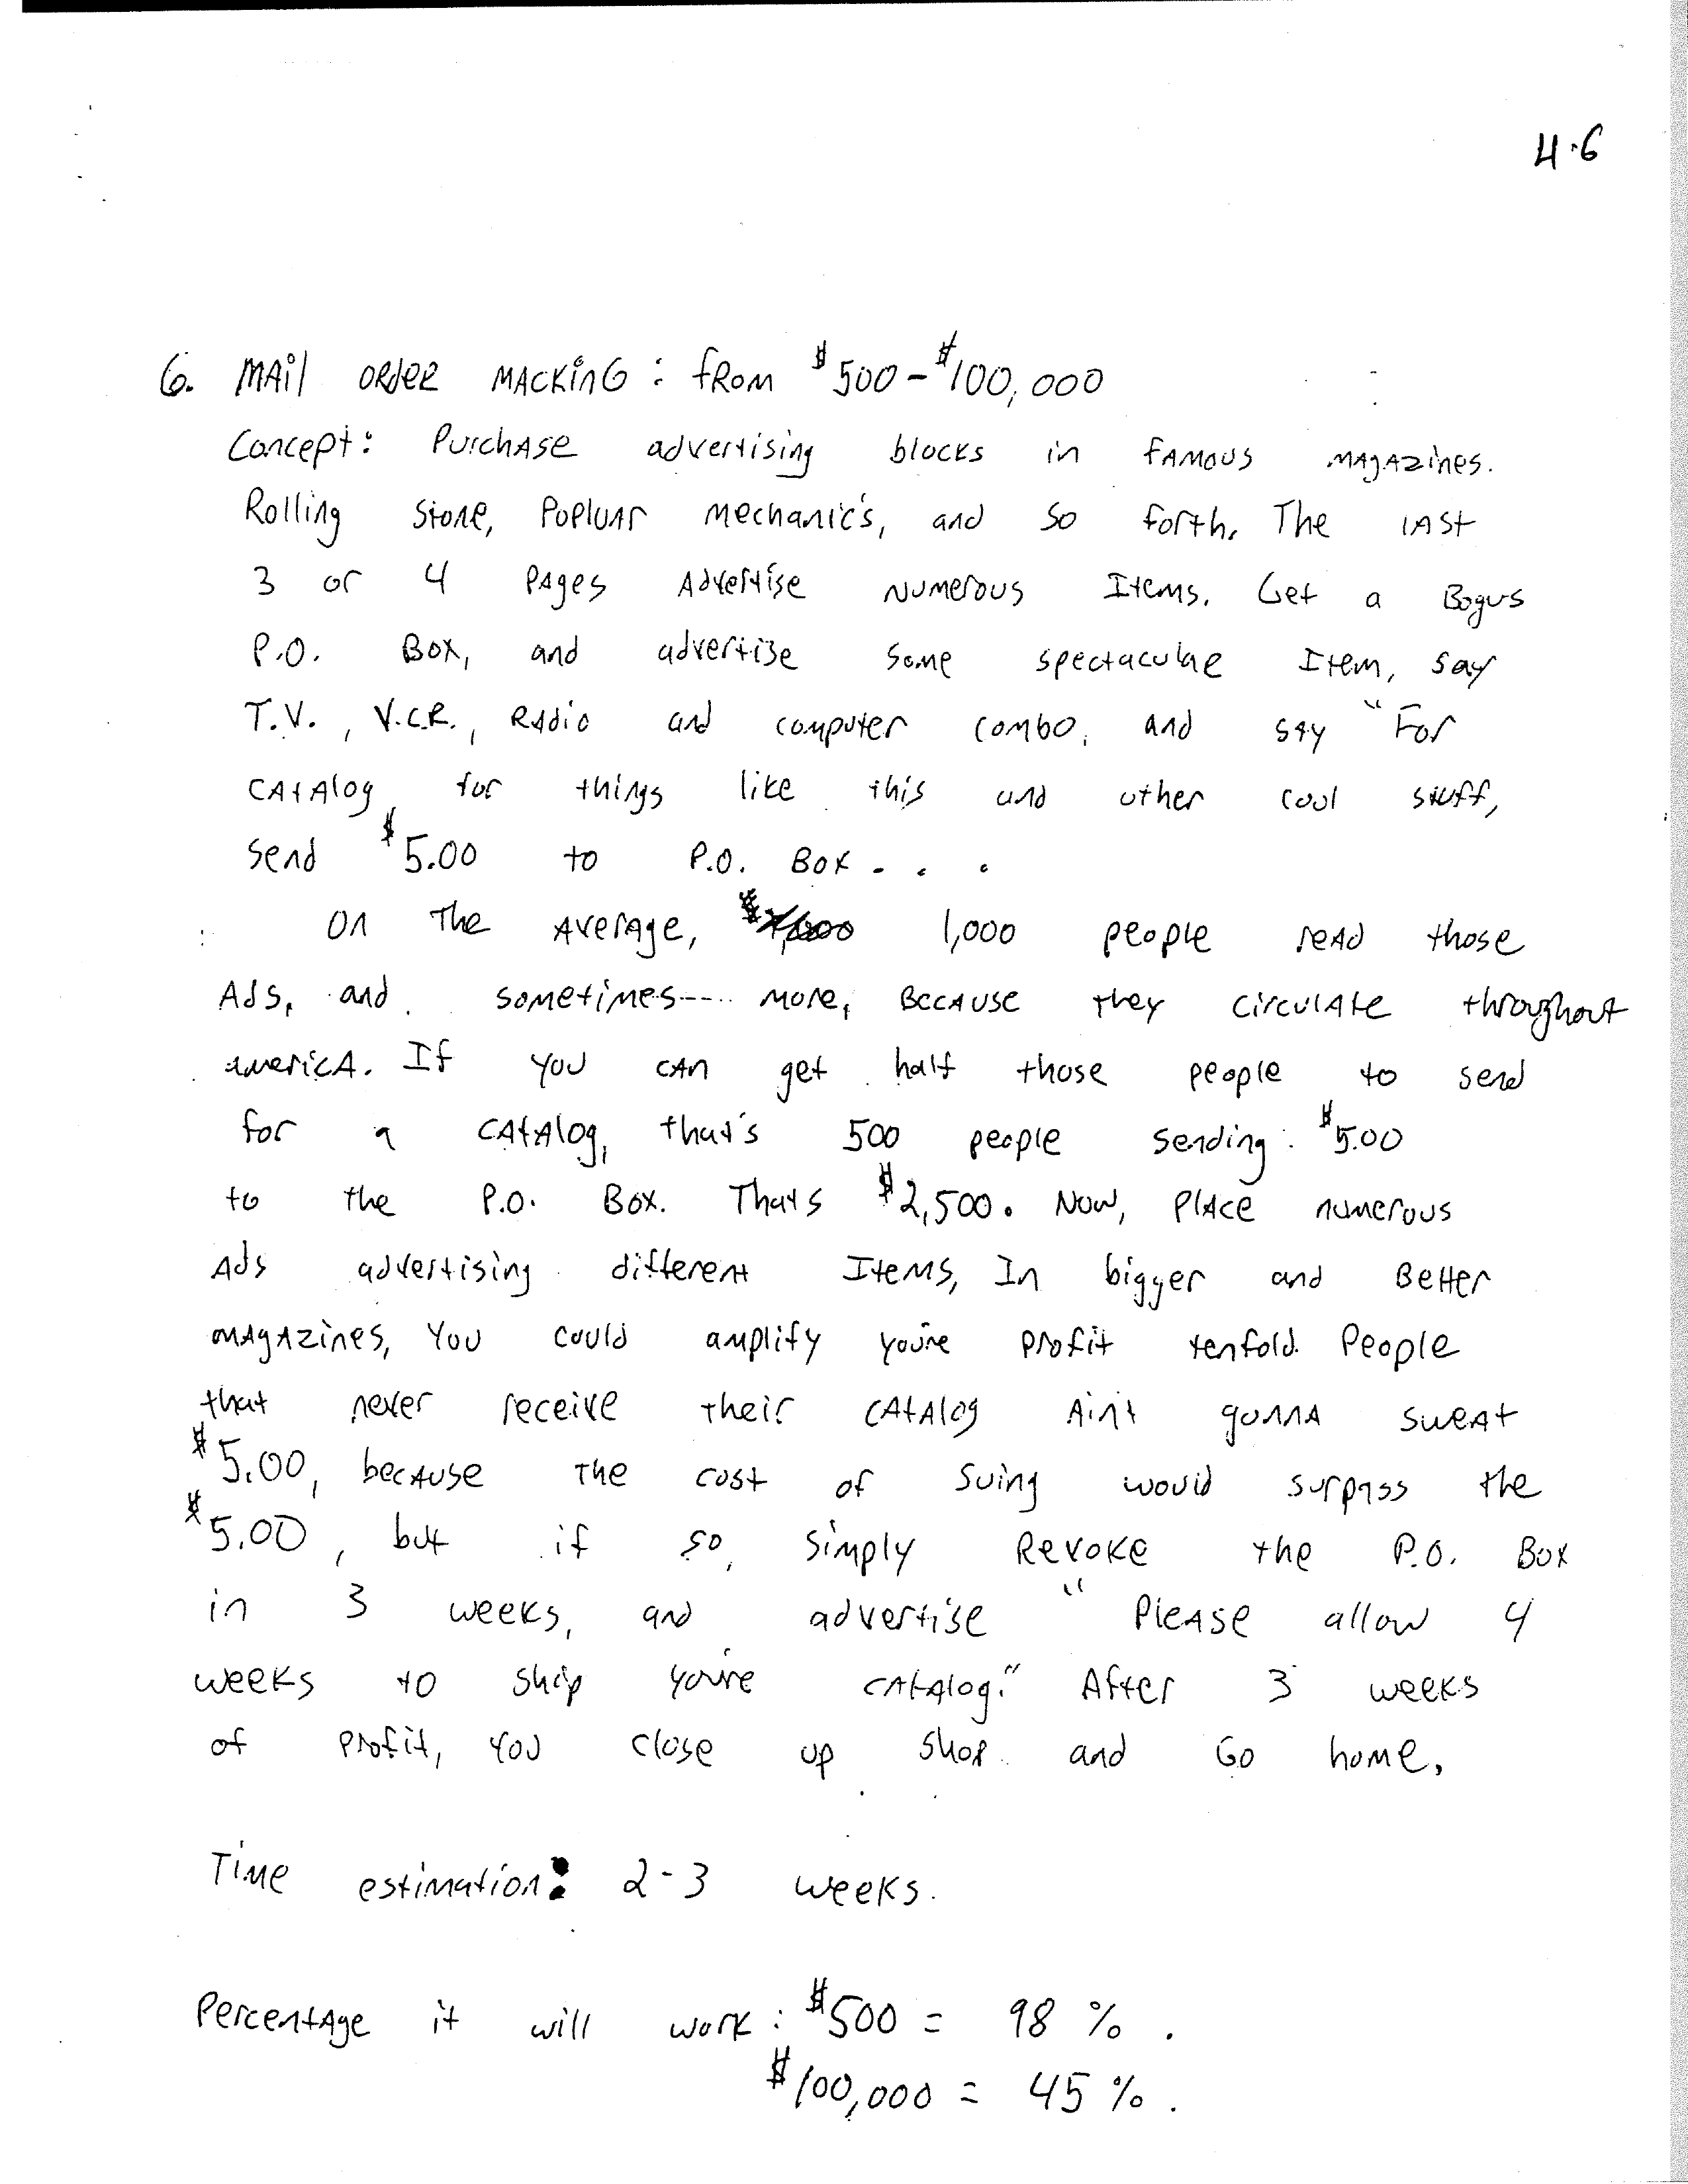 4.6
6. MAil ORdER MACKinG: fROM $500-$100,000
Concept: Purchase advertising blocks in FAMOUS MAgAzines.
Rolling Stone, Popluar Mechanic's, and so forth. The lAst
3 or 4 PAges Advertise Numerous Items. Get a Bogus
P.O. Box, and advertise some spectaculae Item, say
T.V., V.C.R., RAdio and computer combo, and sAy "For
CAtAlog for things like this and other cool stuff,
send $5.00 to P.O. Box . . .
On the Average, 1,000 people reAd those
Ads, and sometimes---- more, BecAuse they circulAte throughout
americA. If you cAn get half those people to send
for a CAtAlog, that's 500 people sending $5.00
to the P.O. Box. Thats $2,500. Now, PlAce numerous
Ads advertising different Items, In bigger and Better
mAgAzines, You could amplify you're profit tenfold. People
that never receive their CAtAlog Ain't gonnA sweAt
$5.00, becAuse the cost of suing would surpass the
$5.00, but if so, simply Revoke the P.O. Box
in 3 weeks, and advertise "PleAse allow 4
weeks to ship you're cAtAlog." After 3 weeks
of profit, You close up shop and Go home.
Time estimation: 2-3 weeks.
PercentAge it will work: $500 = 98 %.
$100,000 = 45 %.